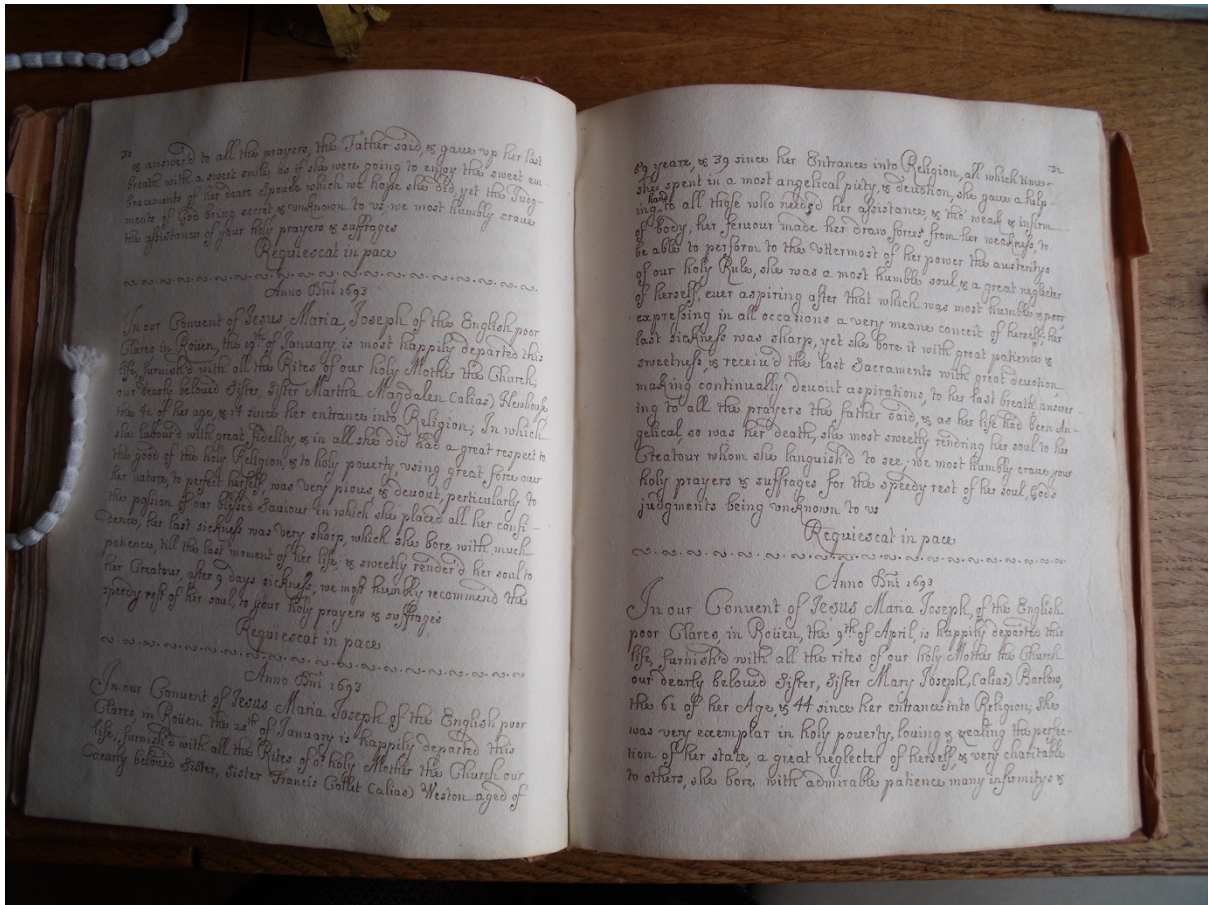 30
& answerd to all the prayers, the Father said, & gaue up her last
breath with a sweet smile as if she were going to enjoy the sweet em-
bracements of her deare Spouse which we hope she did, yet the Judg-
ments of God being secret, & unknown to us, we most humbly craue
the assistance of your holy prayers & suffrages
Requiescat in pace
Anno Dni 1693
In our Conuent of Jesus Maria, Joseph of the English poor
Clares in Roüen, the 19th of January is most happily departed this
life, furnish'd with all the Rites of our holy Mother the Church;
our dearly beloued Sister, Sister Martha Magdalen (alias)
the 41 of her age, & 17 since her entrance into Religion; In which
she labour'd with great fidelity, & in all she did had a great respect to
the good of the holy Religion, & to holy pouerty, using great force ouer
her nature, to perfect herself, was very pious & deuout, perticularly to
the passion of our blessed Sauiour in which she placed all her confi-
dence, her last sickness was very sharp, which she bore with much
patience, till the last moment of her life, & sweetly render'd her soul to
her Creatour, after 9 days sickness, we most humbly recommend the
speedy rest of her soul, to your holy prayers & suffrages
Requiescat in pace
Anno Dni 1693
In our Conuent of Jesus Maria Joseph of the English poor
Clares, in Roüen the 22th of January is happily departed this
life, furnish'd with all the Rites of or holy Mother the Church our
dearly beloued Sister, Sister Francis Collit (alias) Weston aged of
31
59 yeare, & 39 since her Entrance into Religion, all which time
she spent in a most angelical piety, & deuotion, she gaue a help-
ing hand to all those who needed her assistance, & the weak & infirm
of body, her feruour made her draw forces from her weakness, to
be able to perform to the Vttermost of her power the austeritys
of our holy Rule, she was a most humble soul, & a great neglecter
of herself, euer aspiring after that which was most humble & poor
expressing in all occations a very meane conceit of herself; her
last sickness was sharp, yet she bore it with great patience &
sweetness, & receiu'd the last Sacraments with great deuotion,
making continually deuout aspirations, to her last breath answer-
ing to all the prayers the father said, & as her life had been An-
gelical, so was her death, she most sweetly rendring her soul to her
Creatour whom she languish'd to see, we most humbly craue your
holy prayers & suffrages for the speedy rest of her soul, God's
judgments being unknown to us
Requiescat in pace
Anno Dni 1693
In our Conuent of Jesus Maria Joseph, of the English
poor Clares, in Roüen, the 9th of April, is happily departed this
life, furnish'd with all the rites of our holy Mother the Church
our dearly beloued Sister, Sister Mary Joseph, (alias) Barlow,
the 61 of her Age, & 44 since her entrance into Religion; she
was very exemplar in holy pouerty, louing & zealing the perfec-
tion of her state, a great neglecter of herself, & very charitable
to others, she bore with admirable patience many infirmitys &